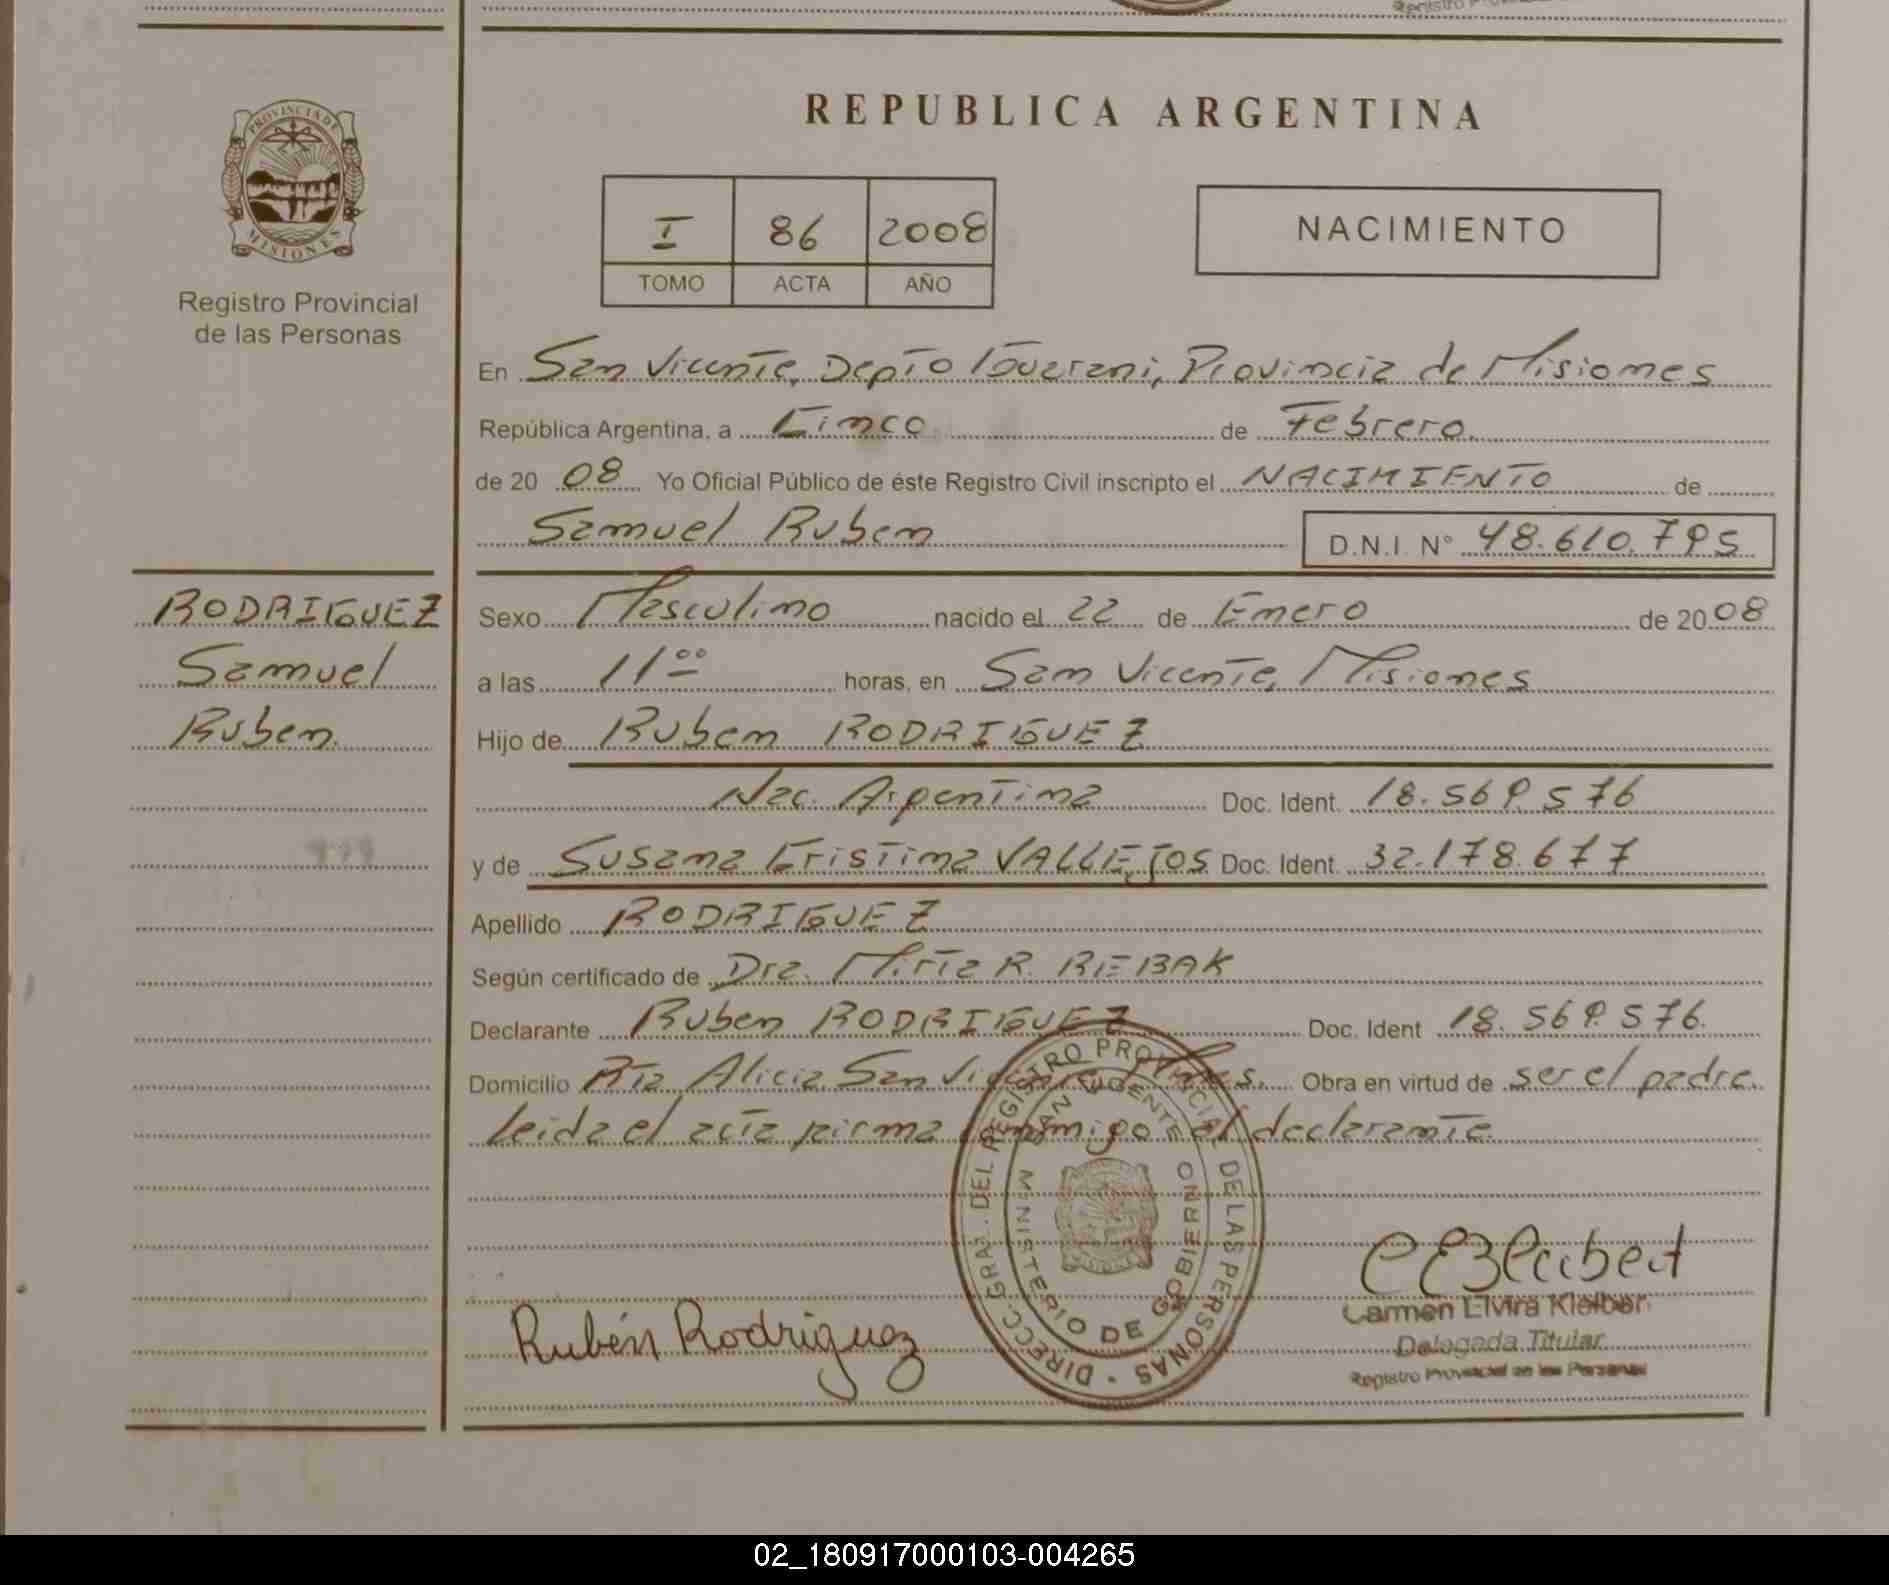 REPUBLICA ARGENTINA
PROVINCIA DE
MISIONES
Registro Provincial
de las Personas
I 86 2008
TOMO ACTA AÑO
NACIMIENTO
En San Vicente, Depto Guarani, Provincia de Misiones
República Argentina, a Cinco de Febrero.
de 20 08 Yo Oficial Público de éste Registro Civil inscripto el NACIMIENTO de
Samuel Ruben D.N.I. N° 48.610.795
RODRIGUEZ
Samuel
Ruben.
Sexo Masculino nacido el 22 de Enero de 20 08
a las 11 00 horas, en San Vicente, Misiones
Hijo de Ruben RODRIGUEZ
Nac. Argentina Doc. Ident. 18.569.576
y de Susana Cristina VALLEJOS Doc. Ident. 32.178.677
Apellido RODRIGUEZ
Según certificado de Dra. Mirta R. REBAK
Declarante Ruben RODRIGUEZ Doc. Ident 18.569.576.
Domicilio Pta Alicia San Vicente Mnes. Obra en virtud de ser el padre.
leida el acta firma conmigo el declarante.
DIRECC. GRAL. DEL REGISTRO PROVINCIAL DE LAS PERSONAS
SAN VICENTE
MINISTERIO DE GOBIERNO
Rubén Rodriguez
Carmen Elvira Kleiber
Delegada Titular
Registro Provincial de las Personas
02_180917000103-004265